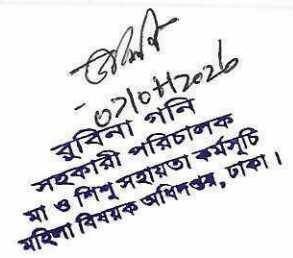 ০২/০৪/২০২৬
রুবিনা গনি
সহকারী পরিচালক
মা ও শিশু সহায়তা কর্মসূচি
মহিলা বিষয়ক অধিদপ্তর, ঢাকা।